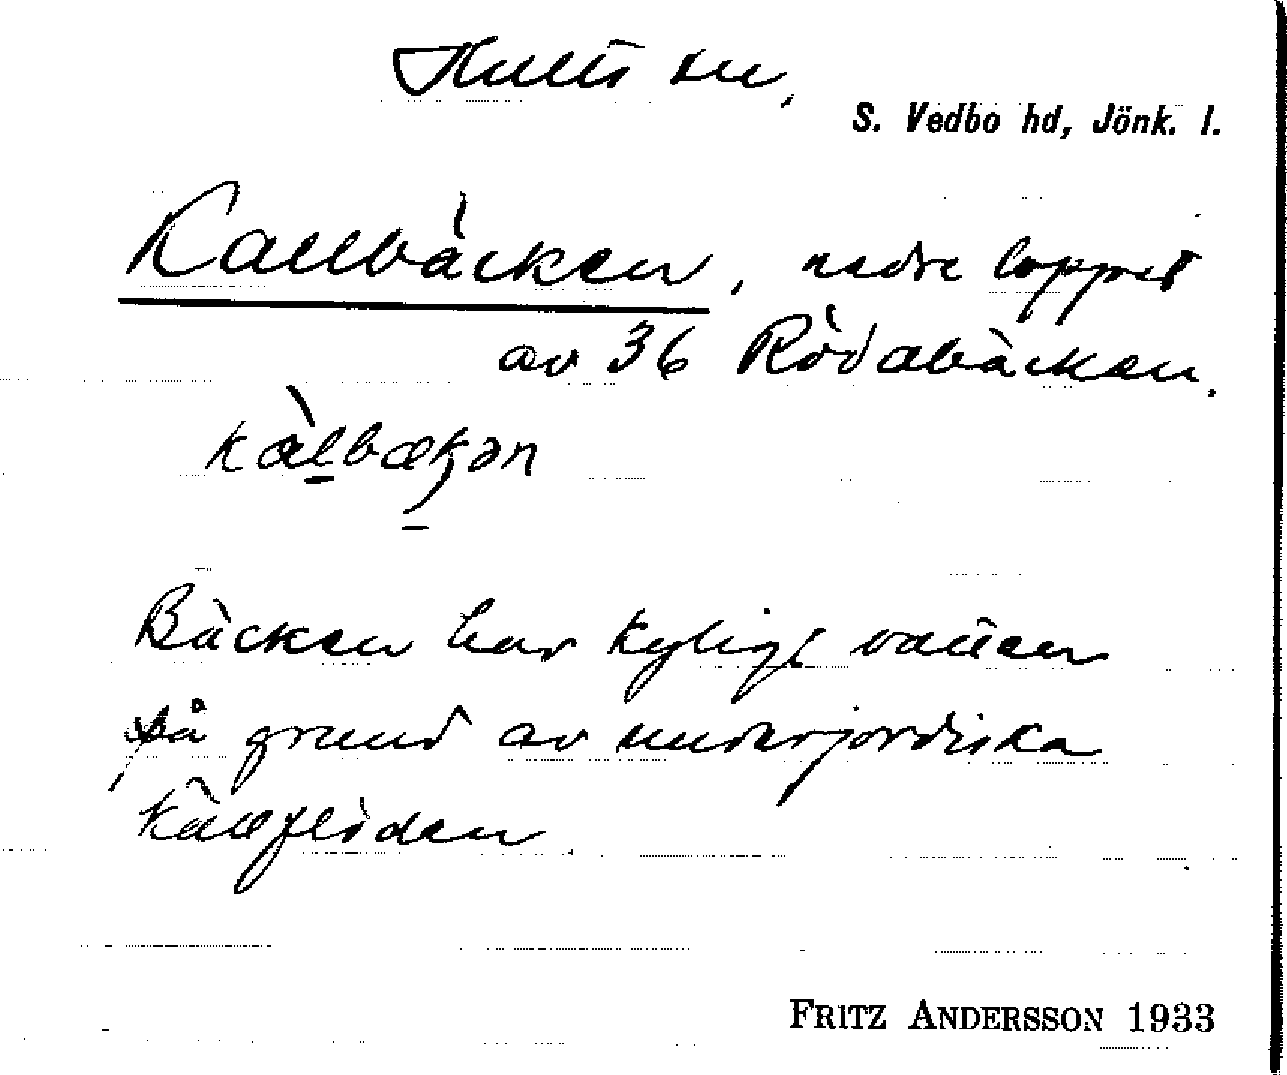 Hults sn,
S. Vedbo hd, Jönk. l.
Kallbäcken, nedre loppet
av 36 Rödabäcken.
kàlbækən
Bäcken har kyligt vatten
på grund av underjordiska
källflöden.
FRITZ ANDERSSON 1933